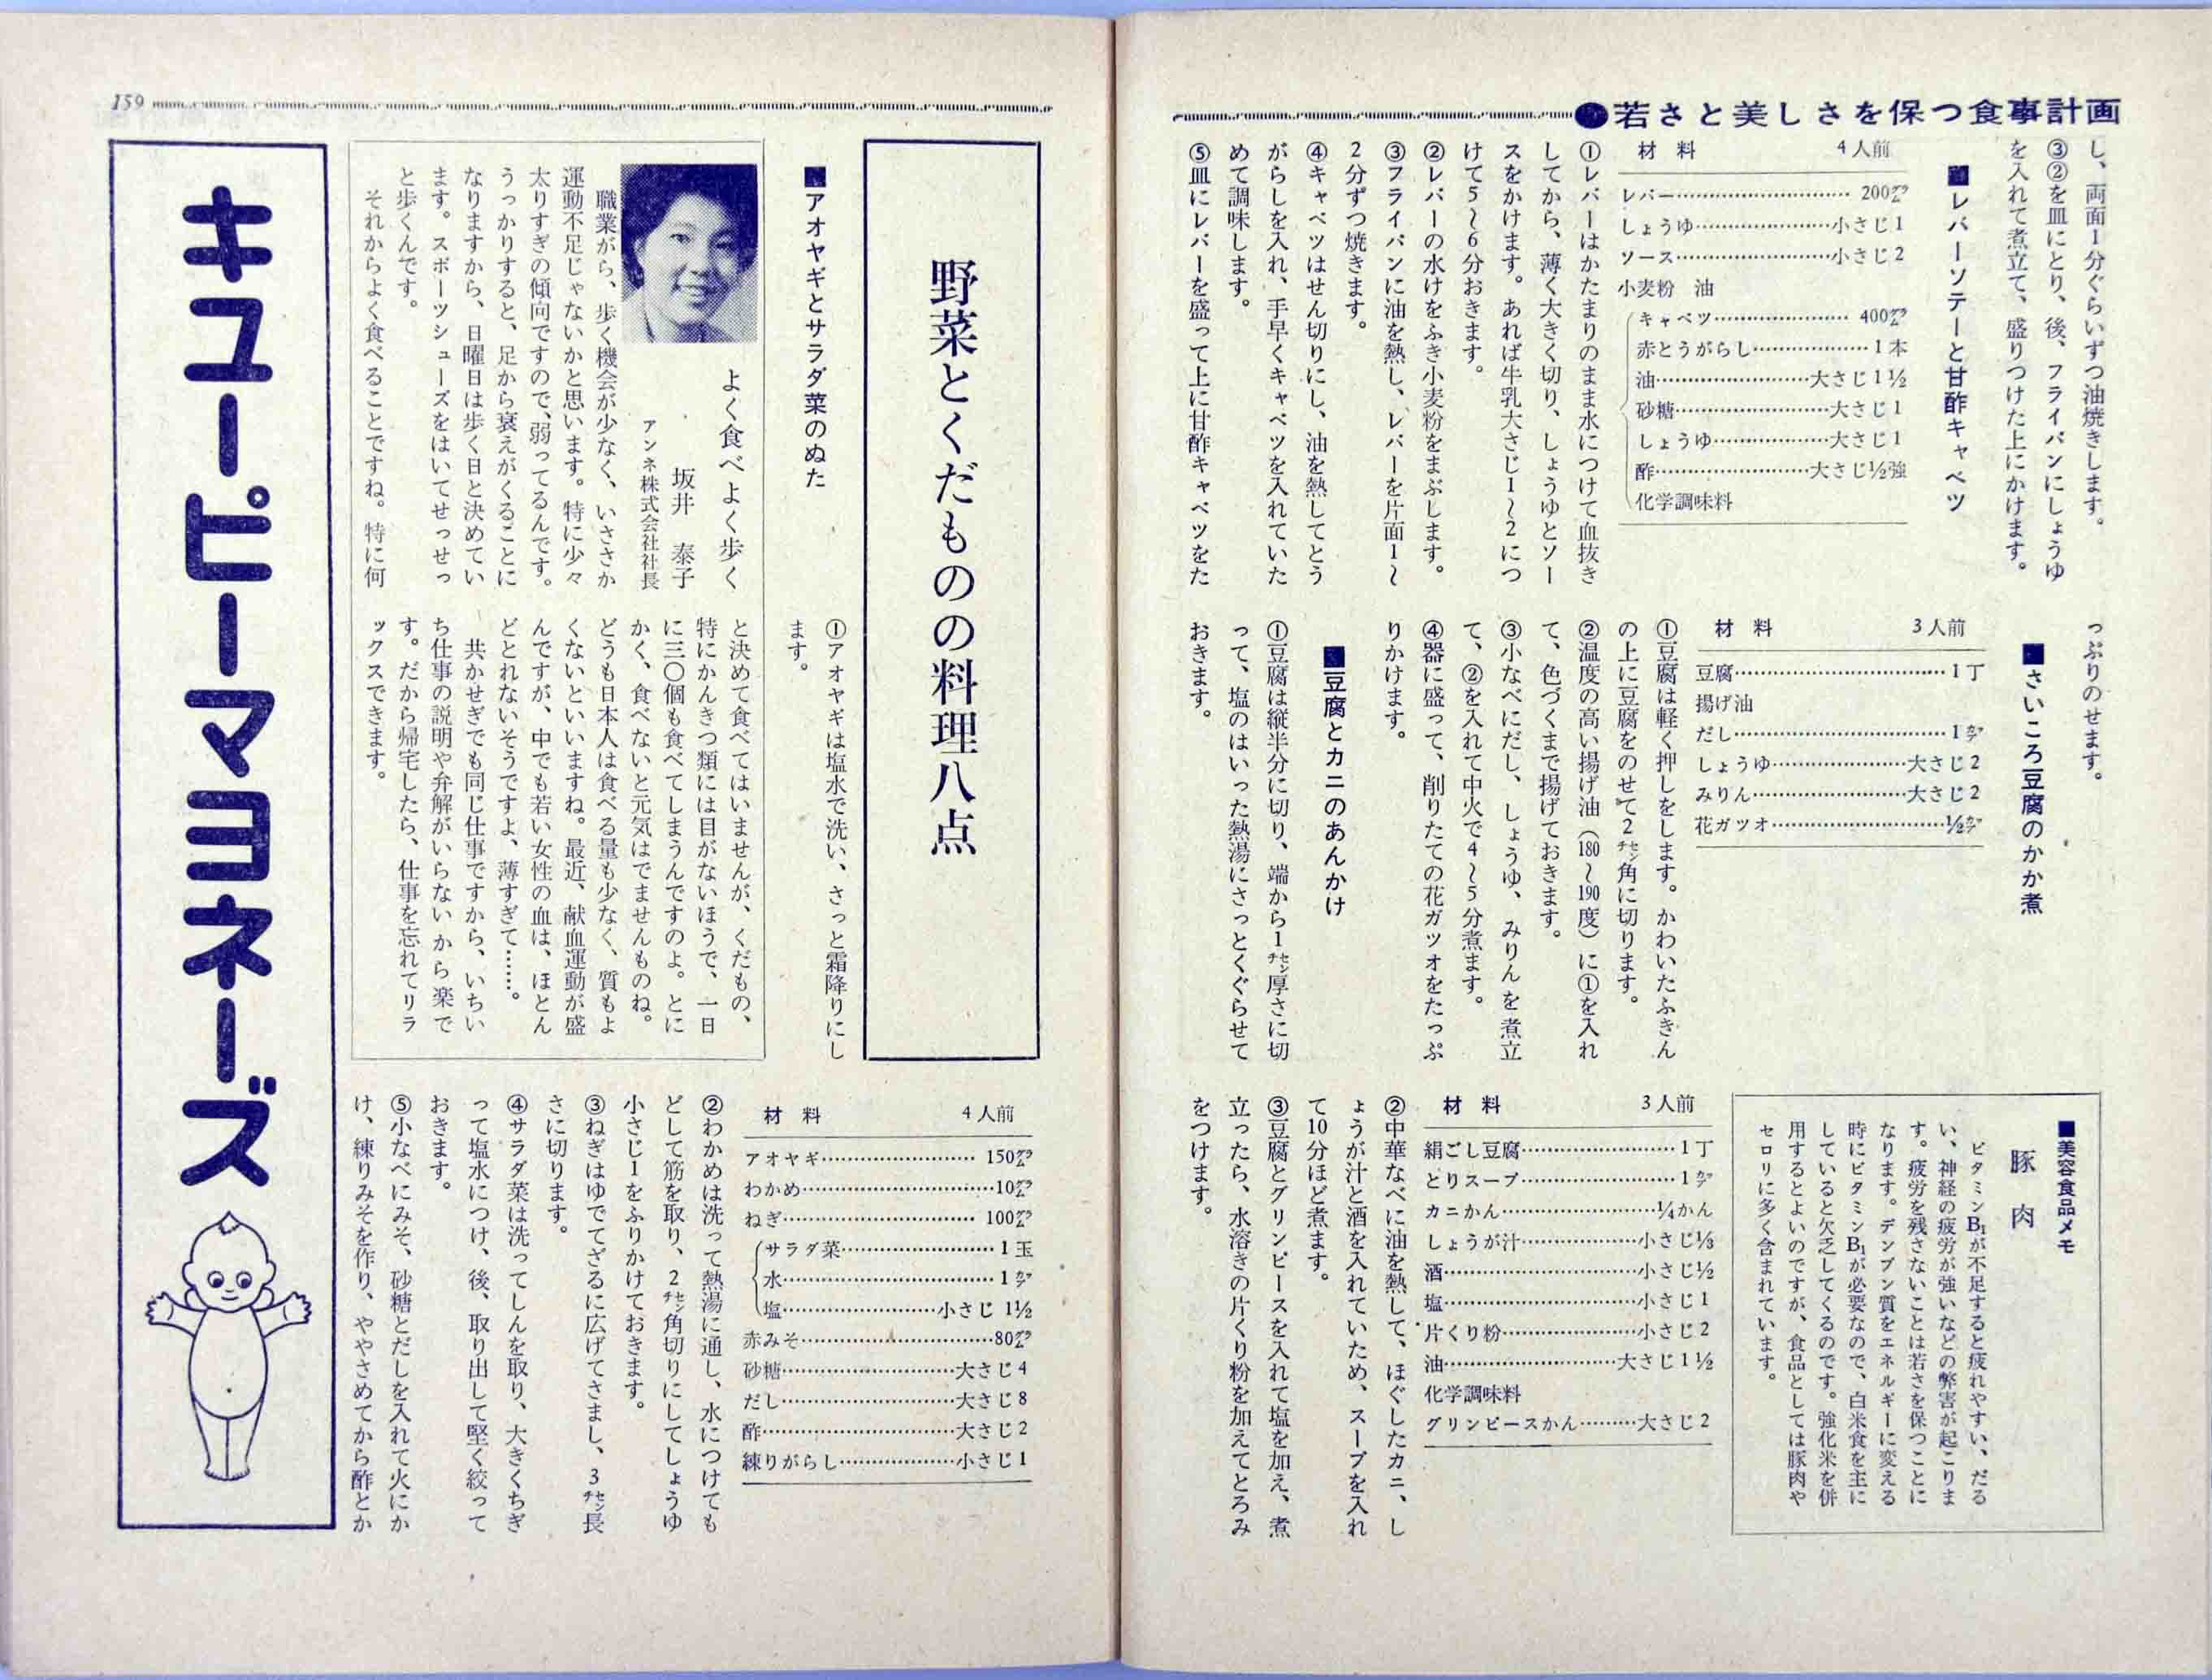 ●若さと美しさを保つ食事計画
し、両面1分ぐらいずつ油焼きします。
③②を皿にとり、後、フライパンにしょうゆ
を入れて煮立て、盛りつけた上にかけます。
■レバーソテーと甘酢キャベツ
材料 4人前
レバー…………200㌘
しょうゆ…………小さじ1
ソース…………小さじ2
小麦粉 油
キャベツ…………400㌘
赤とうがらし…………1本
油…………大さじ1½
砂糖…………大さじ1
しょうゆ…………大さじ1
酢…………大さじ½強
化学調味料
①レバーはかたまりのまま水につけて血抜き
してから、薄く大きく切り、しょうゆとソー
スをかけます。あれば牛乳大さじ1〜2につ
けて5〜6分おきます。
②レバーの水けをふき小麦粉をまぶします。
③フライパンに油を熱し、レバーを片面1〜
2分ずつ焼きます。
④キャベツはせん切りにし、油を熱してとう
がらしを入れ、手早くキャベツを入れていた
めて調味します。
⑤皿にレバーを盛って上に甘酢キャベツをた
っぷりのせます。
■さいころ豆腐のかか煮
材料 3人前
豆腐…………1丁
揚げ油
だし…………1㌍
しょうゆ…………大さじ2
みりん…………大さじ2
花ガツオ…………½㌍
①豆腐は軽く押しをします。かわいたふきん
の上に豆腐をのせて2㌢角に切ります。
②温度の高い揚げ油(180〜190度)に①を入れ
て、色づくまで揚げておきます。
③小なべにだし、しょうゆ、みりんを煮立
て、②を入れて中火で4〜5分煮ます。
④器に盛って、削りたての花ガツオをたっぷ
りかけます。
■豆腐とカニのあんかけ
①豆腐は縦半分に切り、端から1㌢厚さに切
って、塩のはいった熱湯にさっとくぐらせて
おきます。
■美容食品メモ
豚肉
ビタミンB₁が不足すると疲れやすい、だる
い、神経の疲労が強いなどの弊害が起こりま
す。疲労を残さないことは若さを保つことに
なります。デンプン質をエネルギーに変える
時にビタミンB₁が必要なので、白米食を主に
していると欠乏してくるのです。強化米を併
用するとよいのですが、食品としては豚肉や
セロリに多く含まれています。
材料 3人前
絹ごし豆腐…………1丁
とりスープ…………1㌍
カニかん…………¼かん
しょうが汁…………小さじ⅓
酒…………小さじ½
塩…………小さじ1
片くり粉…………小さじ2
油…………大さじ1½
化学調味料
グリンピースかん………大さじ2
②中華なべに油を熱して、ほぐしたカニ、し
ょうが汁と酒を入れていため、スープを入れ
て10分ほど煮ます。
③豆腐とグリンピースを入れて塩を加え、煮
立ったら、水溶きの片くり粉を加えてとろみ
をつけます。
159
野菜とくだものの料理八点
■アオヤギとサラダ菜のぬた
①アオヤギは塩水で洗い、さっと霜降りにし
ます。
材料 4人前
アオヤギ…………150㌘
わかめ…………10㌘
ねぎ…………100㌘
サラダ菜…………1玉
水…………1㌍
塩…………小さじ1½
赤みそ…………80㌘
砂糖…………大さじ4
だし…………大さじ8
酢…………大さじ2
練りがらし…………小さじ1
②わかめは洗って熱湯に通し、水につけても
どして筋を取り、2㌢角切りにしてしょうゆ
小さじ1をふりかけておきます。
③ねぎはゆでてざるに広げてさまし、3㌢長
さに切ります。
④サラダ菜は洗ってしんを取り、大きくちぎ
って塩水につけ、後、取り出して堅く絞って
おきます。
⑤小なべにみそ、砂糖とだしを入れて火にか
け、練りみそを作り、ややさめてから酢とか
よく食べよく歩く
坂井 泰子
アンネ株式会社社長
職業がら、歩く機会が少なく、いささか
運動不足じゃないかと思います。特に少々
太りすぎの傾向ですので、弱ってるんです。
うっかりすると、足から衰えがくることに
なりますから、日曜日は歩く日と決めてい
ます。スポーツシューズをはいてせっせっ
と歩くんです。
それからよく食べることですね。特に何
と決めて食べてはいませんが、くだもの、
特にかんきつ類には目がないほうで、一日
に三〇個も食べてしまうんですのよ。とに
かく、食べないと元気はでませんものね。
どうも日本人は食べる量も少なく、質もよ
くないといいますね。最近、献血運動が盛
んですが、中でも若い女性の血は、ほとん
どとれないそうですよ、薄すぎて……。
共かせぎでも同じ仕事ですから、いちい
ち仕事の説明や弁解がいらないから楽で
す。だから帰宅したら、仕事を忘れてリラ
ックスできます。
キユーピーマヨネーズ